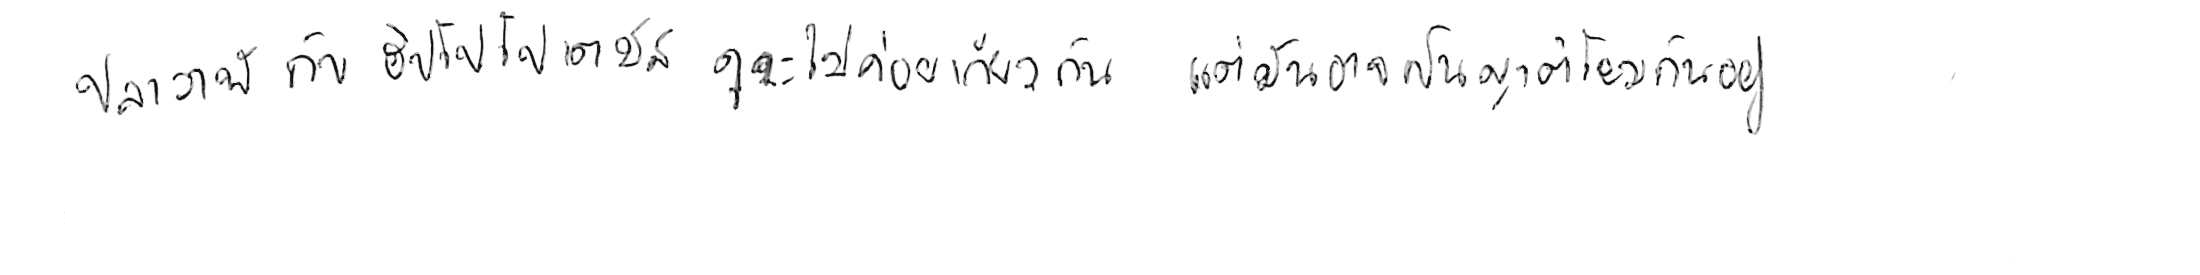 ปลาวาฬ กับ ฮิปโปโปเตมัส ดูจะไม่ค่อยเกี่ยวกัน แต่มันอาจเป็นญาติโยมกันอยู่